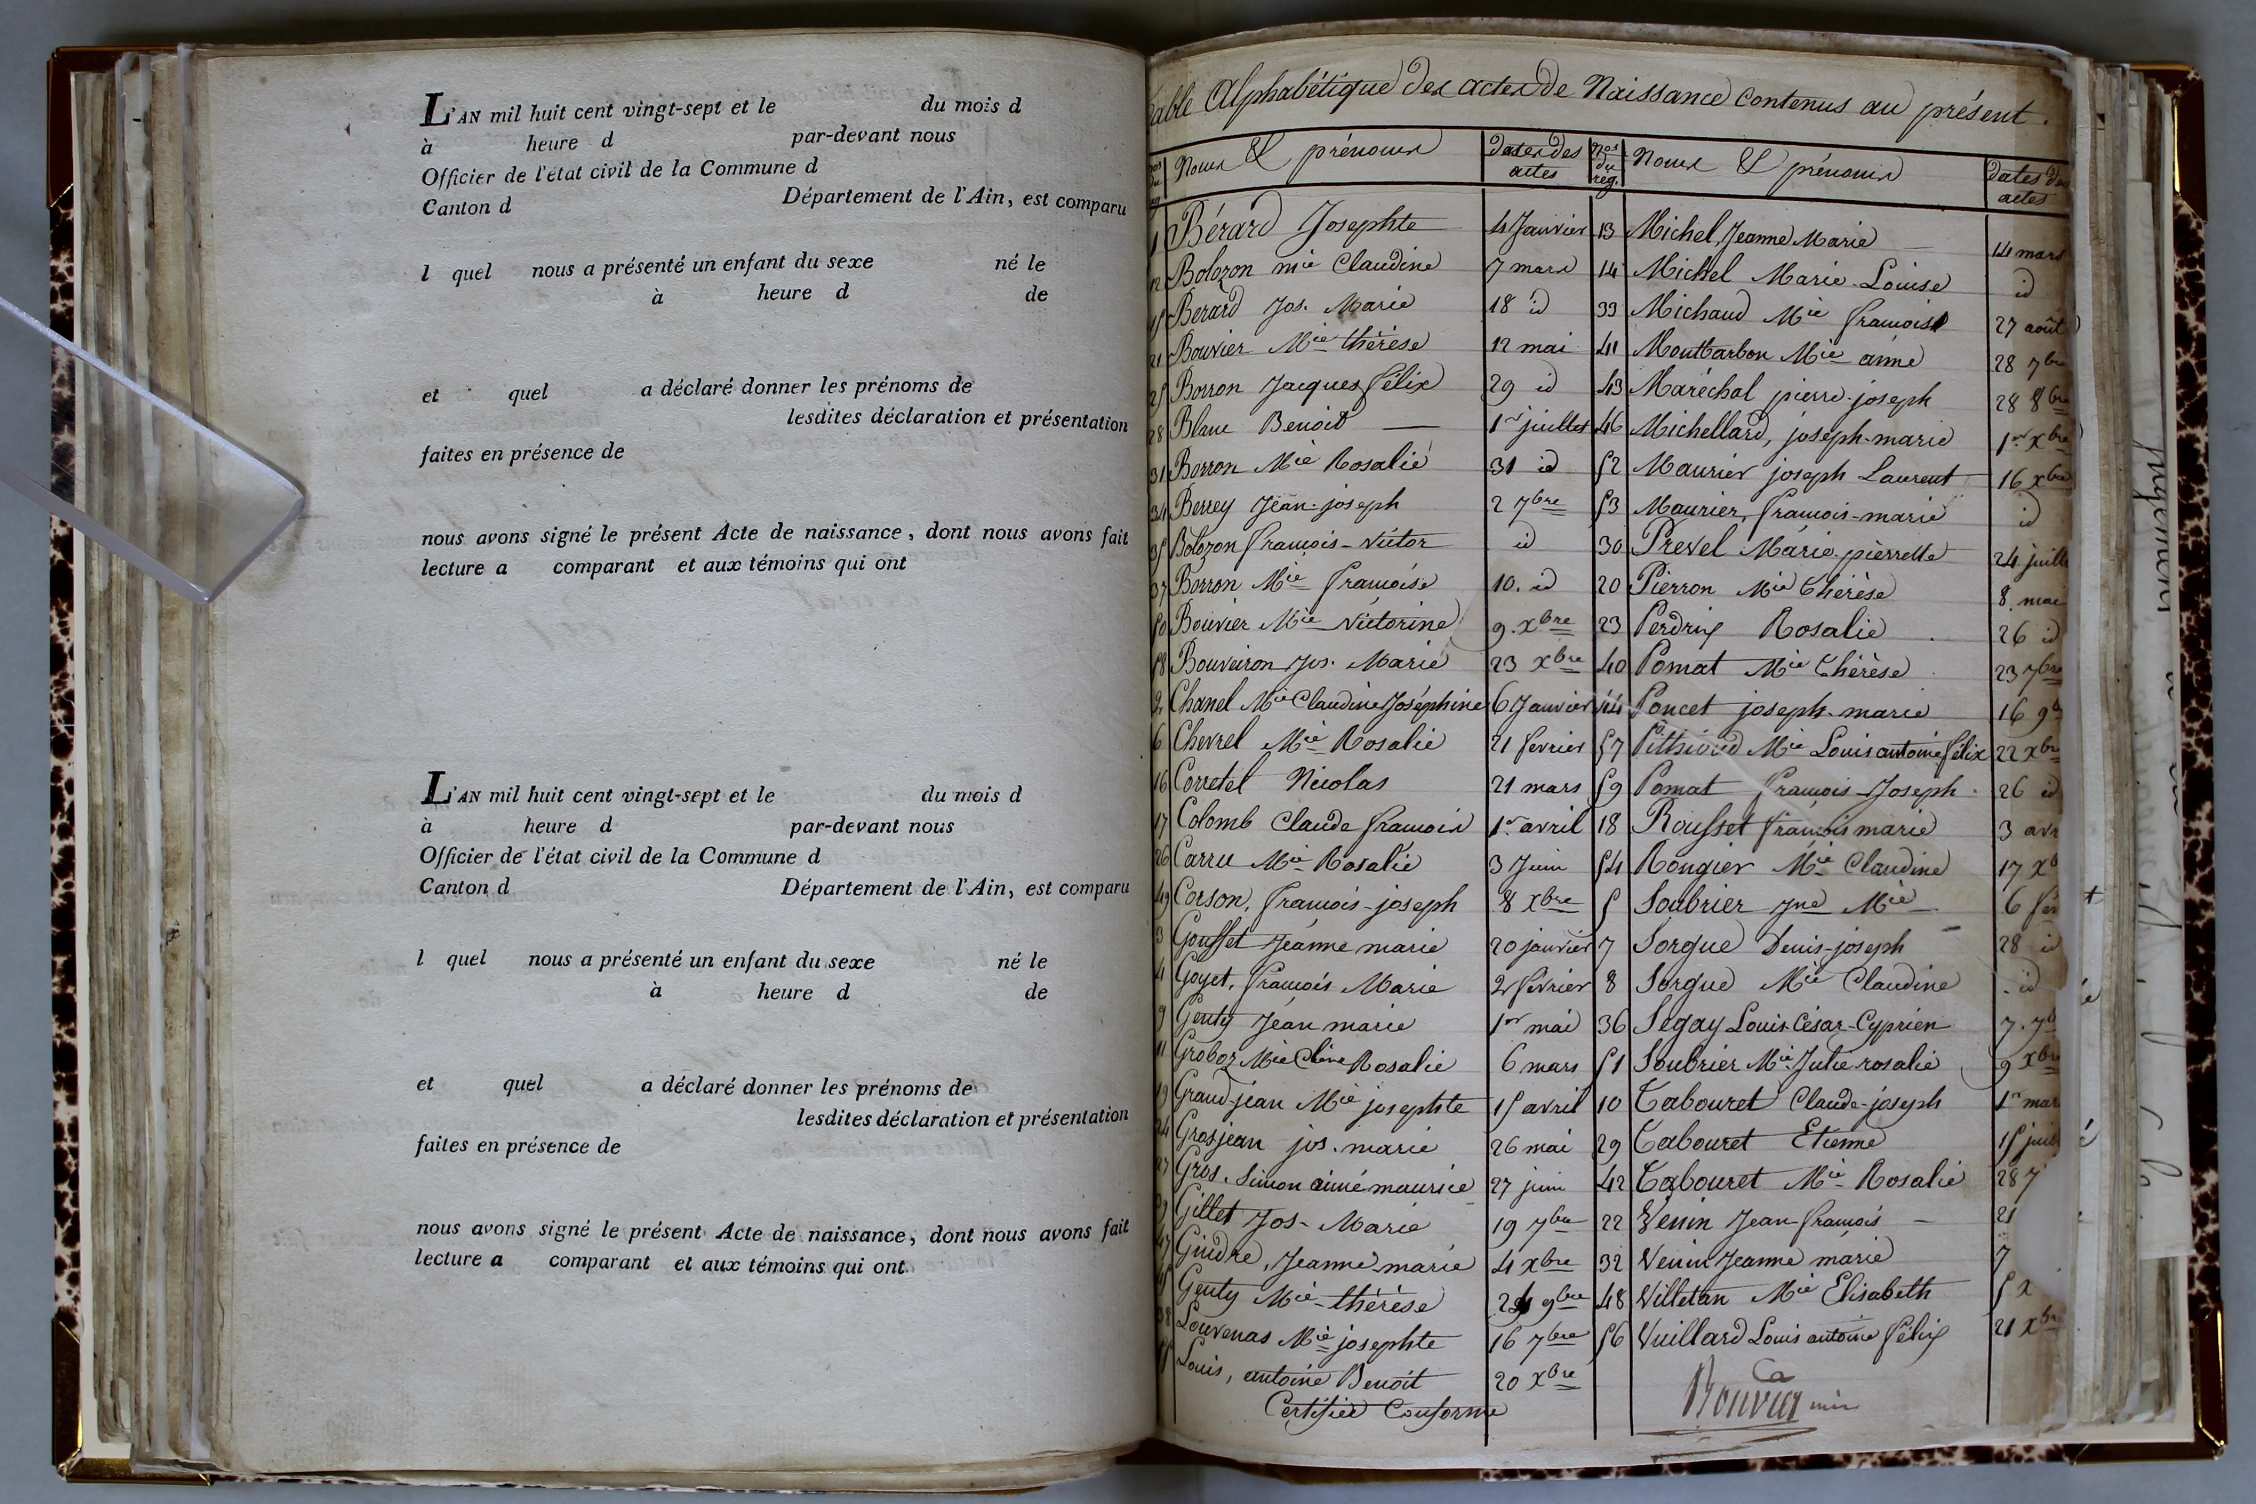 L'AN mil huit cent vingt-sept et le du mois d
à heure d par-devant nous
Officier de l'état civil de la Commune d
Canton d Département de l'Ain, est comparu
l quel nous a présenté un enfant du sexe né le
à heure d de
et quel a déclaré donner les prénoms de
lesdites déclaration et présentation
faites en présence de
nous avons signé le présent Acte de naissance, dont nous avons fait
lecture a comparant et aux témoins qui ont
L'AN mil huit cent vingt-sept et le du mois d
à heure d par-devant nous
Officier de l'état civil de la Commune d
Canton d Département de l'Ain, est comparu
l quel nous a présenté un enfant du sexe né le
à heure d de
et quel a déclaré donner les prénoms de
lesdites déclaration et présentation
faites en présence de
nous avons signé le présent Acte de naissance, dont nous avons fait
lecture a comparant et aux témoins qui ont
Table Alphabétique des actes de Naissance contenus au présent.
Noms & prénoms dates des actes Nos du reg. Noms & prénoms dates des actes
1 Bérard Josephte 4 Janvier 13 Michel, Jeanne Marie 14 mars
12 Bolozon mie Claudine 7 mars 14 Michel Marie Louise id
15 Berard Jos. Marie 18 id 33 Michaud Mie francoise 27 août
21 Bouvier Mie thérèse 12 mai 41 Montbarbon Mie aimé 28 7bre
25 Borron Jacques félix 29 id 43 Maréchal pierre-joseph 28 8bre
28 Blanc Benoit — 1er juillet 46 Michellard, joseph-marie 1er xbre
31 Borron Mie Rosalie 31 id 52 Maurier joseph Laurent 16 xbre
34 Berrey Jean-joseph 2 7bre 53 Maurier, francois-marie id
35 Bolozon francois-victor id 30 Prevel Marie pierrette 24 juill
37 Borron Mie francoise 10. id 20 Pierron Mie thérèse 8. mai
50 Bouvier Mie Victorine 9. xbre 23 Perdrix Rosalie 26 id
58 Bouveiron Jos. Marie 23 xbre 40 Pomat Mie thérèse 23 7bre
2 Chanel Mie Claudine Joséphine 6 Janvier 44 Poncet joseph-marie 16 9b
6 Chevrel Mie Rosalie 21 fevrier 57 Pithioud Mie Louis antoine félix 22 xbre
16 Corretel Nicolas 21 mars 59 Pomat francois-Joseph 26 id
17 Colomb Claude francois 1er avril 18 Rousset francois marie 3 avr
26 Carru Mie Rosalie 3 Juin 54 Rongier Mie Claudine 17 xb
49 Corson, francois-joseph 8 xbre 5 Soubrier Jne Mie 6 fév
3 Gousset Jeanne marie 20 janvier 7 Sorgue Denis-joseph 28 id
4 Goyet, francois Marie 2 fevrier 8 Sorgue Mie Claudine id
9 Genty Jean marie 1er mai 36 Segay Louis-César-Cyprien 7. 7b
11 Groboz Mie Cline Rosalie 6 mars 51 Soubrier Mie Julie rosalie 9 xbre
19 Grand-jean Mie josephte 15 avril 10 Tabouret Claude-joseph 1er mar
24 Grosjean jos. marie 26 mai 29 Tabouret Etienne 15 juil
27 Gros. Simon aimé maurice 27 juin 42 Tabouret Mie Rosalie 28 7
39 Gillet Jos-Marie 19 7bre 22 Venin Jean francois — 21
47 Gindre, Jeanne marie 4 xbre 32 Venin Jeanne marie 7
45 Genty Mie-thérèse 24 9bre 48 Villetan Mie Elisabeth 5 x
38 Louvenas Mie josephte 16 7bre 56 Vuillard Louis antoine félix 21 xbre
55 Louis, antoine Benoit 20 xbre
Certifié Conforme
Bouvier